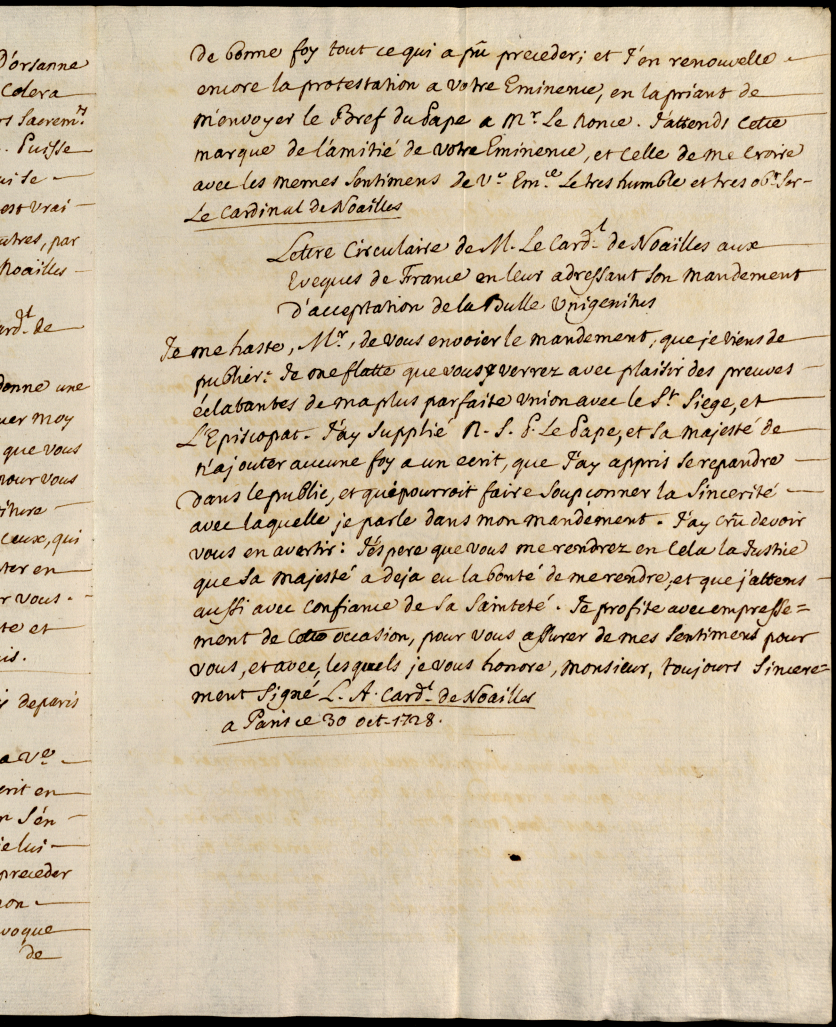 D'orsanne
Colera
rs Sacrem.ts
. Puisse
uise
est vrai
autres, par
Noailles
Card.l de
donne une
uer moy
que vous
pour vous
ceux, qui
ter en
r vous.
te et
is.
s deparis
a V.e
crit en
n S'en
e lui
preceder
non
voque
de
de bonne foy tout ce qui a pû preceder; et J'en renouvelle
encore la protestation a votre Eminence, en la priant de
m'envoyer le Bref du Pape a Mr. Le Nonce. J'attends cette
marque de l'amitié de votre Eminence, et celle de me croire
avec les memes sentimens de V.e Em.ce Le tres humble et tres obt. Ser-
Le Cardinal de Noailles
Lettre Circulaire de M. Le Card.l de Noailles aux
Eveques de France en leur adressant son mandement
d'acceptation de la Bulle Unigenitus
Je me haste, Mr., de vous envoier le mandement, que je viens de
publier: Je me flatte que vous y verrez avec plaisir des preuves
éclatantes de ma plus parfaite union avec le St. Siege, et
L'Episcopat. J'ay supplié N. S. P. Le Pape, et sa majesté de
n'ajouter aucune foy a un ecrit, que J'ay appris se repandre
dans le public, et qui pourroit faire soupconner la sincerité
avec laquelle je parle dans mon mandement. J'ay crû devoir
vous en avertir: J'éspere que vous me rendrez en cela la Justice
que sa majesté a deja eu la bonté de me rendre, et que j'attens
aussi avec confiance de sa sainteté. Je profite avec empresse=
ment de cette occasion, pour vous assurer de mes sentimens pour
vous, et avec, lesquels je vous honore, monsieur, toujours sincere=
ment signé L. A. Card.l de Noailles
a Paris ce 30 oct. 1728.